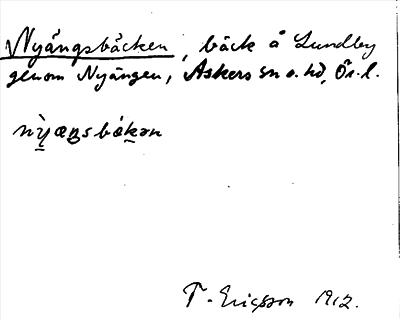 Nyängsbäcken, bäck å Lundby
genom Nyängen, Askers sn o. hd, Ör. l.
nỳæŋsbækən
T. Ericsson 1912.